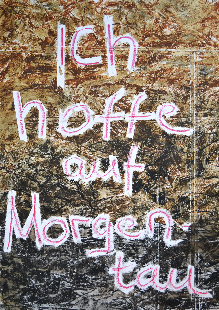 Ich
hoffe
auf
Morgen-
tau